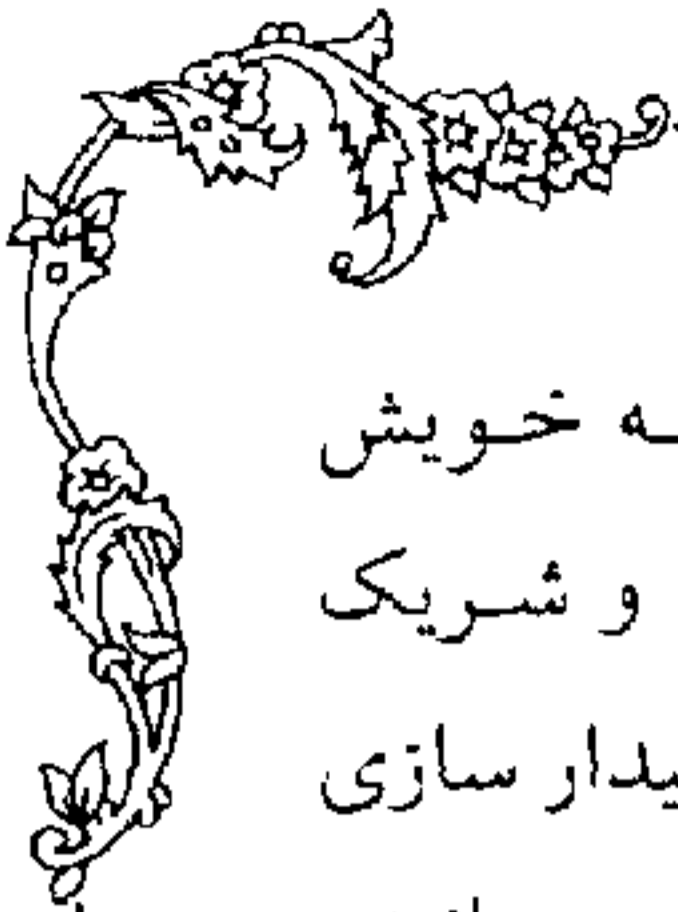 ـه خویش
و شریک
یدار سازی